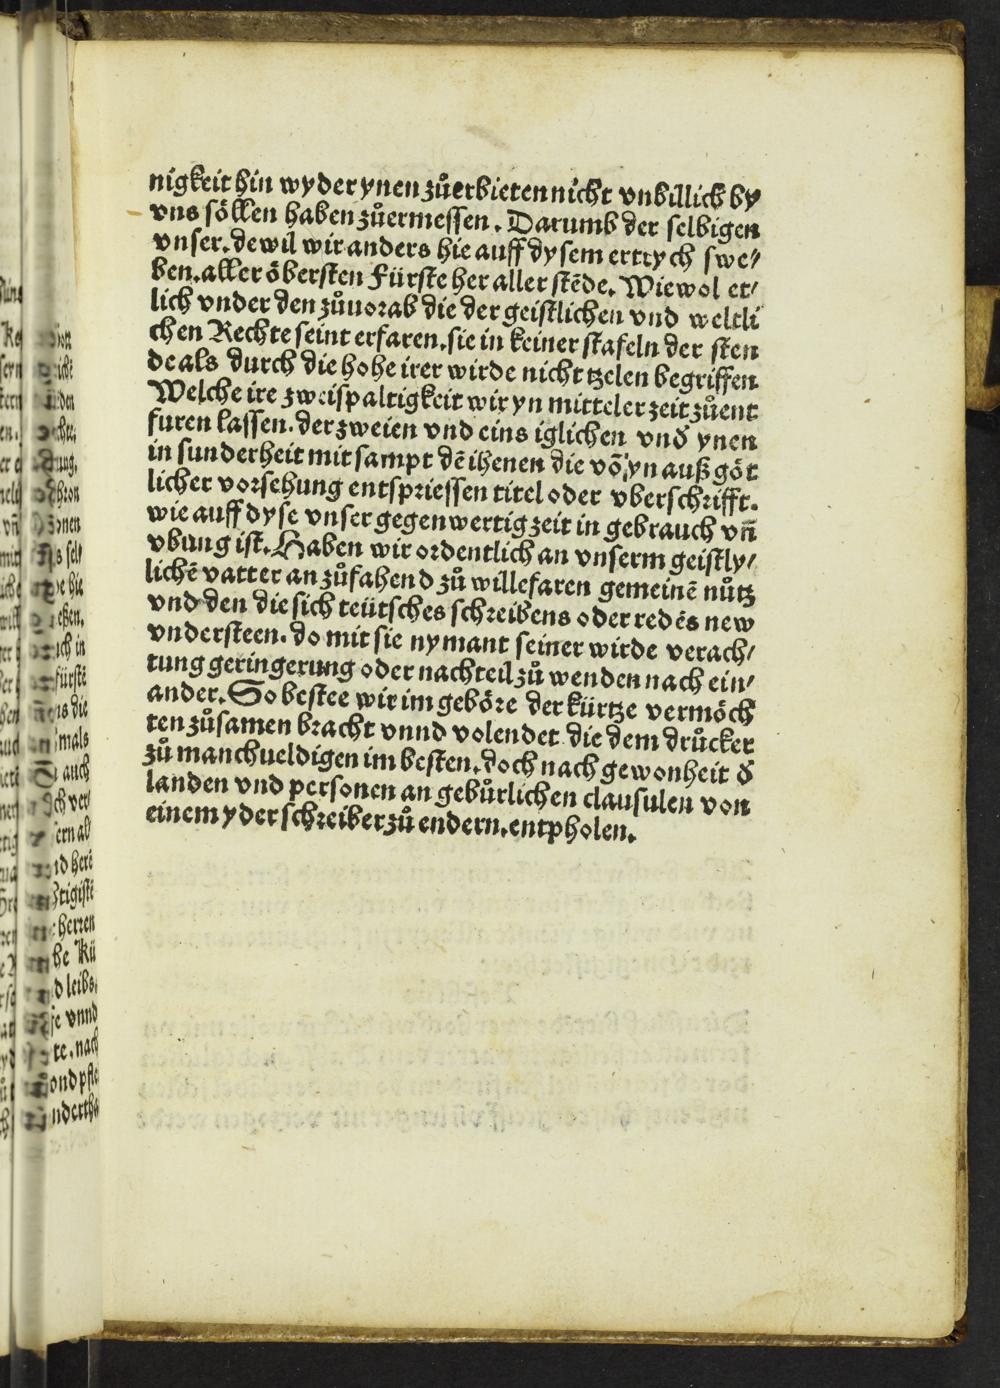 nigkeit hin wyder ynen zůerbieten nicht vnbillich by
vns söllen haben zůermessen. Darumb der selbigen
vnser. dewil wir anders hie auff dysem ertrych swe/
ben. aller öbersten Fürste her aller stēde. Wiewol et/
lich vnder den zůuorab die der geistlichen vnd weltli
chen Rechte seint erfaren. sie in keiner stafeln der sten
de als durch die hohe irer wirde nicht tzelen begriffen
Welche ire zweispaltigkeit wir yn mitteler zeit zůent
furen lassen. der zweien vnd eins iglichen vnď ynen
in sunderheit mit sampt dē ihenen die vō yn auß göt
licher vorsehung entspriessen titel oder vberschrifft.
wie auff dyse vnser gegenwertig zeit in gebrauch vn̄
vbung ist. Haben wir ordentlich an vnserm geistly/
lichē vatter an zůfahend zů willefaren gemeinē nůtz
vnd den die sich teütsches schreibens oder redēs new
vndersteen. do mit sie nymant seiner wirde verach/
tung geringerung oder nachteil zů wenden nach ein/
ander. So bestee wir im geböre der kürtze vermöch
ten zůsamen bracht vnnd volendet die dem drůcker
zů manchueldigen im besten. doch nach gewonheit ď
landen vnd personen an gebůrlichen clausulen von
einem yder schreiber zů endern. entpholen.